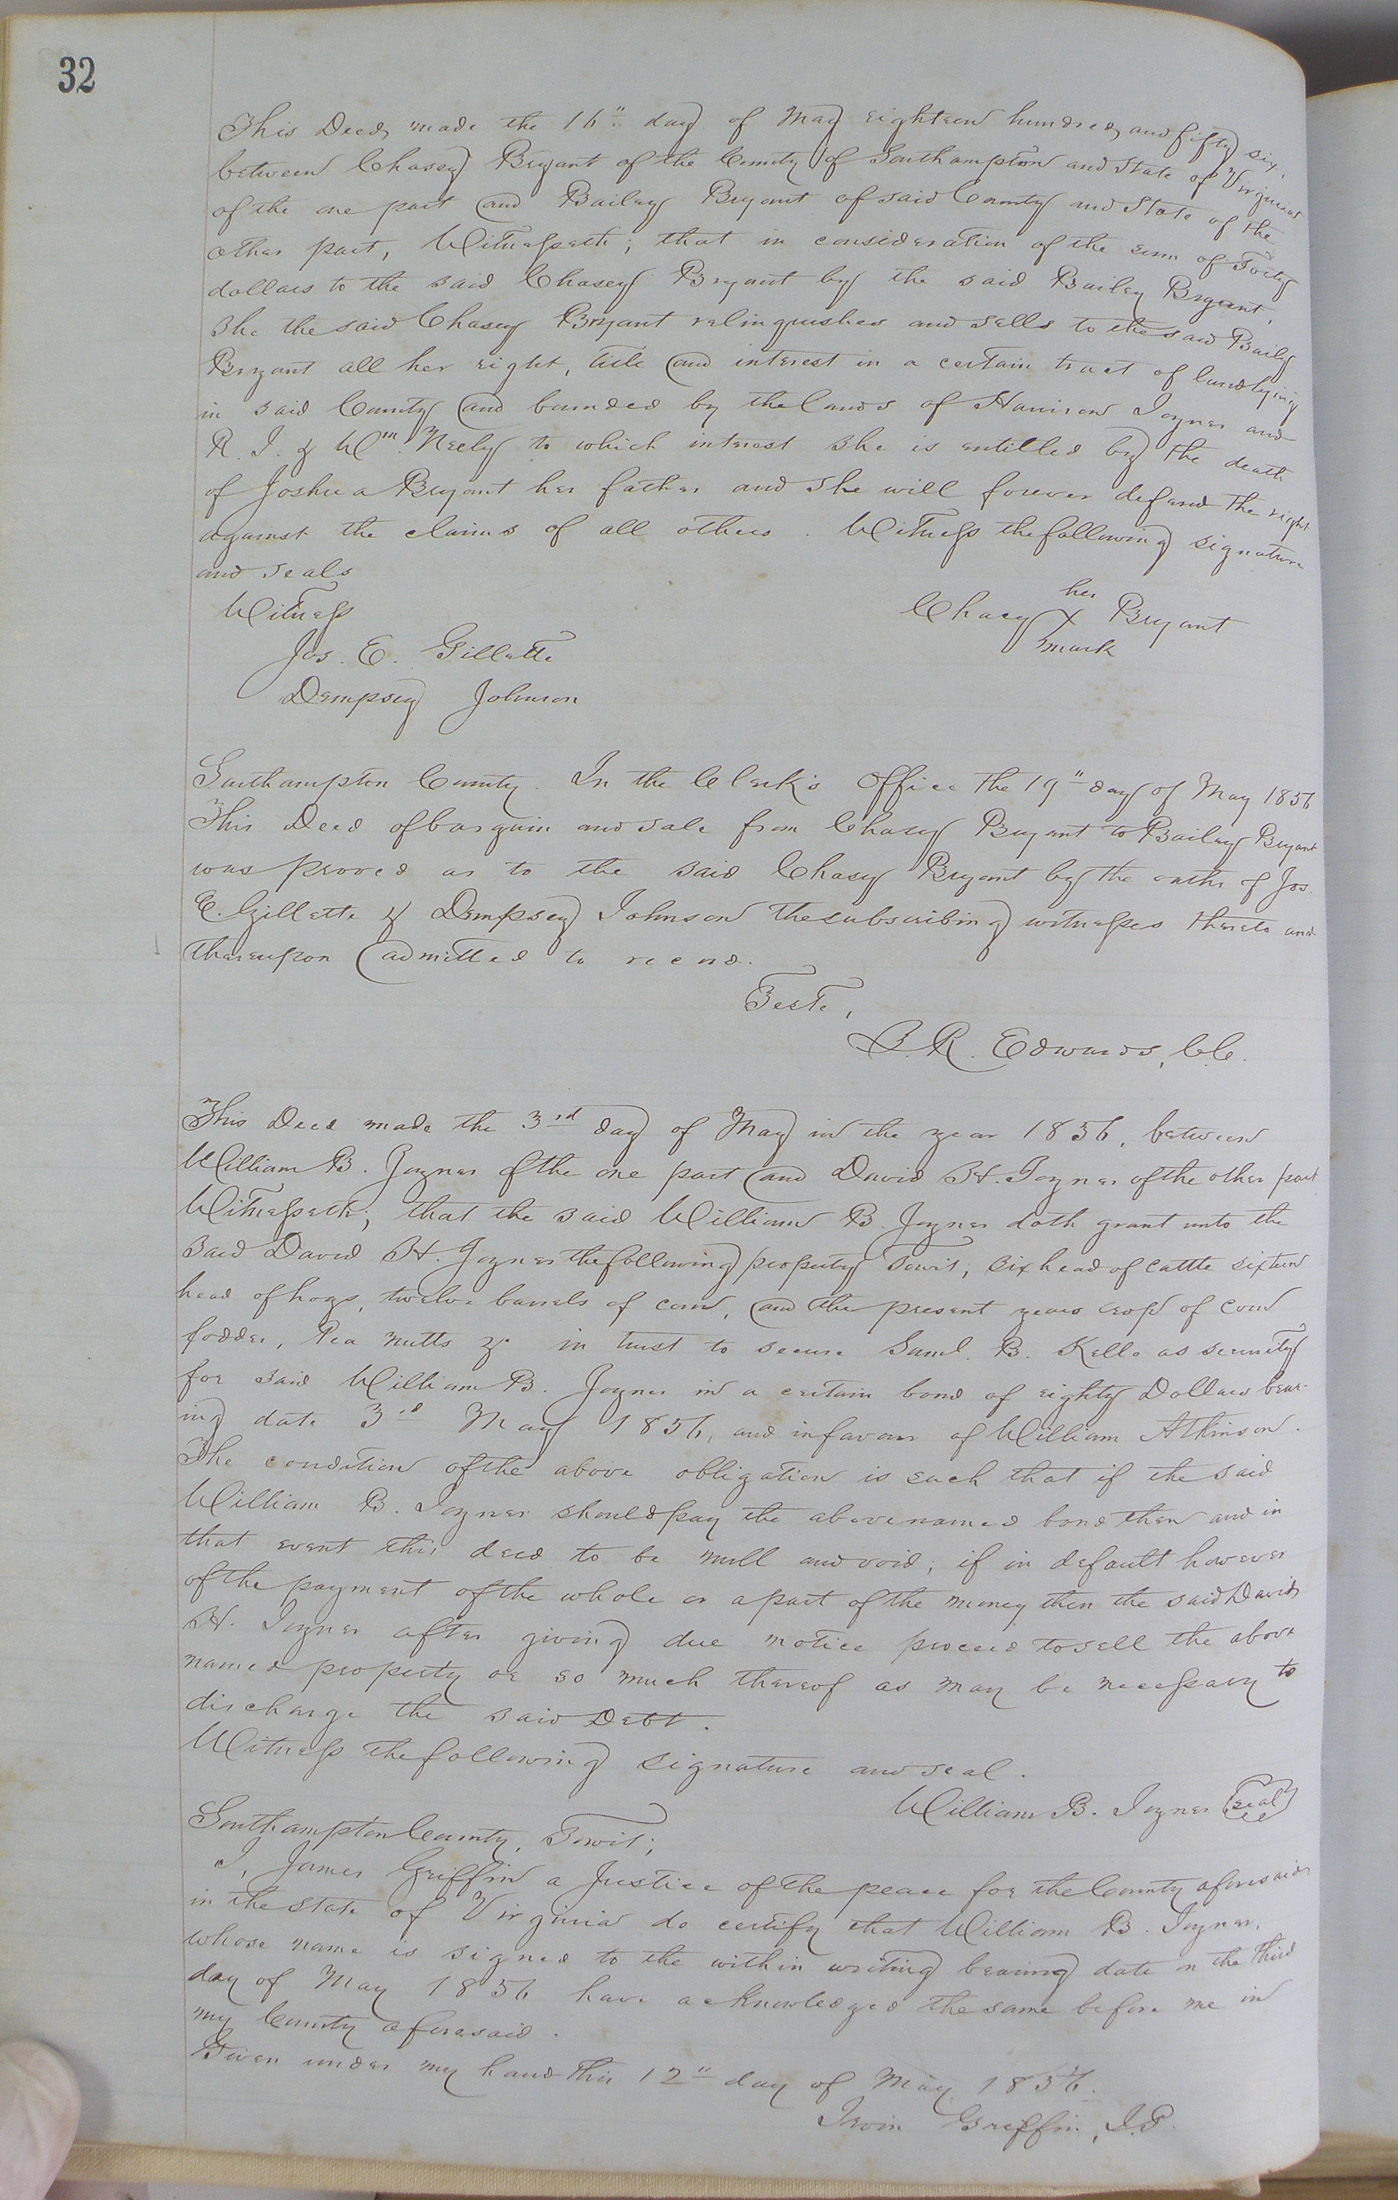 32
This Deed, made the 16" day of May eighteen hundred and fifty six,
between Chasey Bryant of the County of Southampton and State of Virginia
of the one part and Bailey Bryant of said County and State of the
other part, Witnesseth; that in consideration of the sum of Forty
dollars to the said Chasey Bryant by the said Bailey Bryant,
She the said Chasey Bryant relinquishes and sells to the said Baily
Bryant all her right, title and interest in a certain tract of land lying
in said County and bounded by the lands of Harrison Joyner and
R. J. & Wm. Neely to which interest she is entitled by the death
of Joshua Bryant her father and she will forever defend the right
against the claims of all others. Witness the following signature
and seals
Witness
her
Chasey X Bryant
mark
Jos. E. Gillette
Dempsey Johnson
Southampton County. In the Clerk's Office the 19" day of May 1856
This Deed of bargain and sale from Chasey Bryant to Bailey Bryant
was proved as to the said Chasey Bryant by the oaths of Jos.
E. Gillette & Dempsey Johnson the subscribing witnesses thereto and
thereupon admitted to record.
Teste,
L. R. Edwards, C.C.
This Deed made the 3rd day of May in the year 1856, between
William B. Joyner of the one part and David H. Joyner of the other part
Witnesseth; that the said William B. Joyner doth grant unto the
said David H. Joyner the following property Towit; six head of cattle sixteen
head of hogs, twelve barrels of corn, and the present years crop of corn
fodder, Pea nutts &c in trust to secure Saml. B. Kello as security
for said William B. Joyner in a certain bond of eighty Dollars bear-
ing date 3rd May 1856, and in favour of William Atkinson.
The condition of the above obligation is such that if the said
William B. Joyner should pay the above named bond then and in
that event this deed to be null and void; if in default however
of the payment of the whole or a part of the money then the said David
H. Joyner after giving due notice proceed to sell the above
named property or so much thereof as may be necessary to
discharge the said Debt.
Witness the following signature and seal.
William B. Joyner Seal
Southampton County, Towit;
I, James Griffin a Justice of the peace for the County aforesaid
in the State of Virginia do certify that William B. Joyner,
whose name is signed to the within writing bearing date on the third
day of May 1856 have acknowledged the same before me in
my County aforesaid.
Given under my hand this 12" day of May 1856.
Irvin Griffin, J.P.